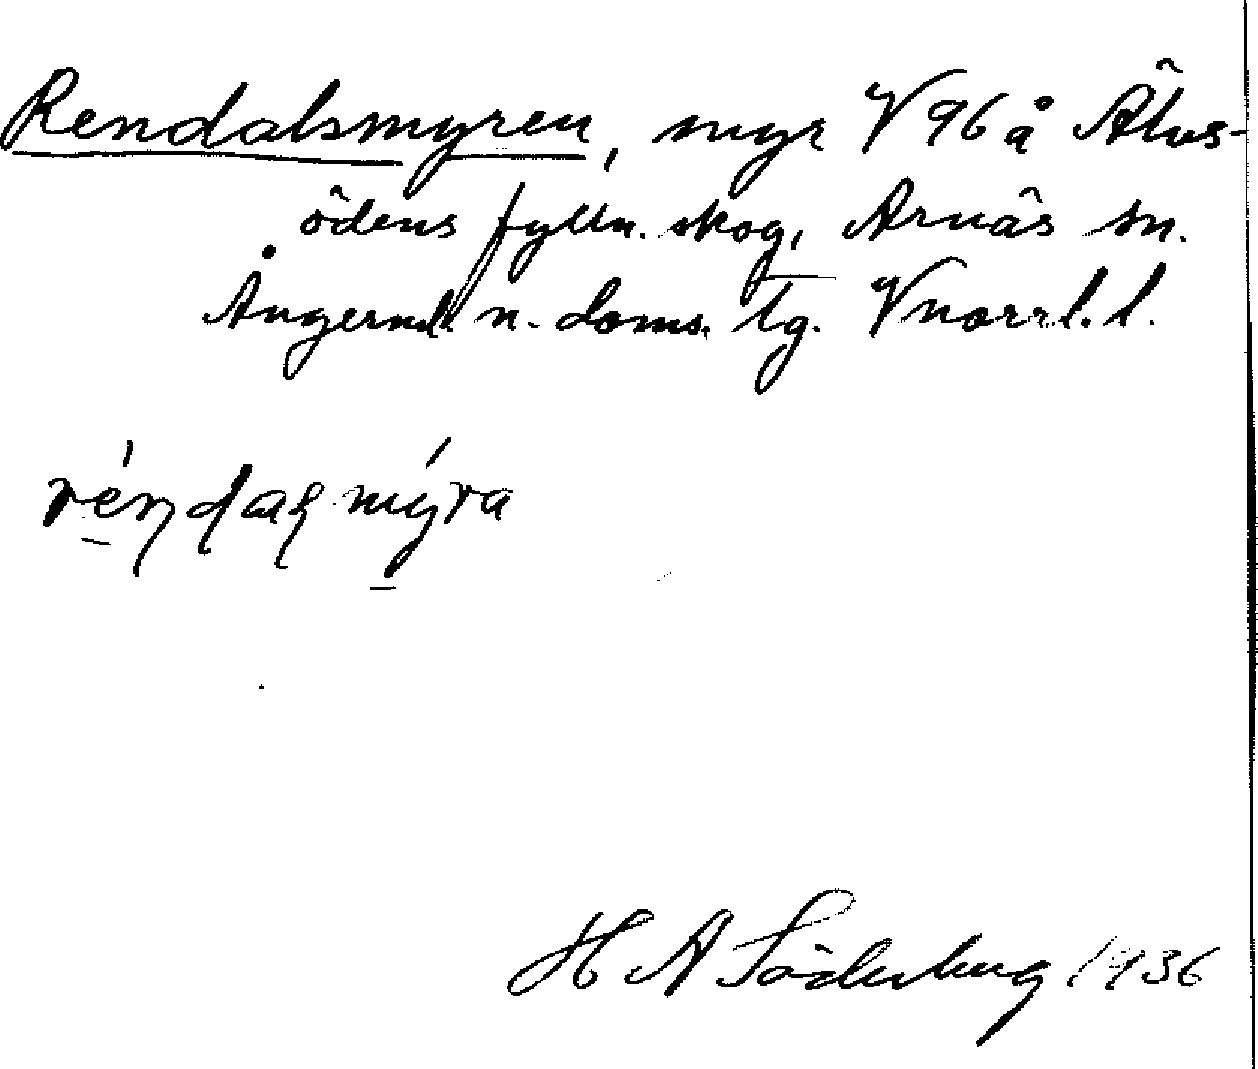 Rendalsmyren, myr V 96 å Älvs-
ödens fylln. skog, Arnäs sn.
Ångermlds n. doms. tg. Vnorrl. l.
réndaḷsmýra
H A Söderberg 1936